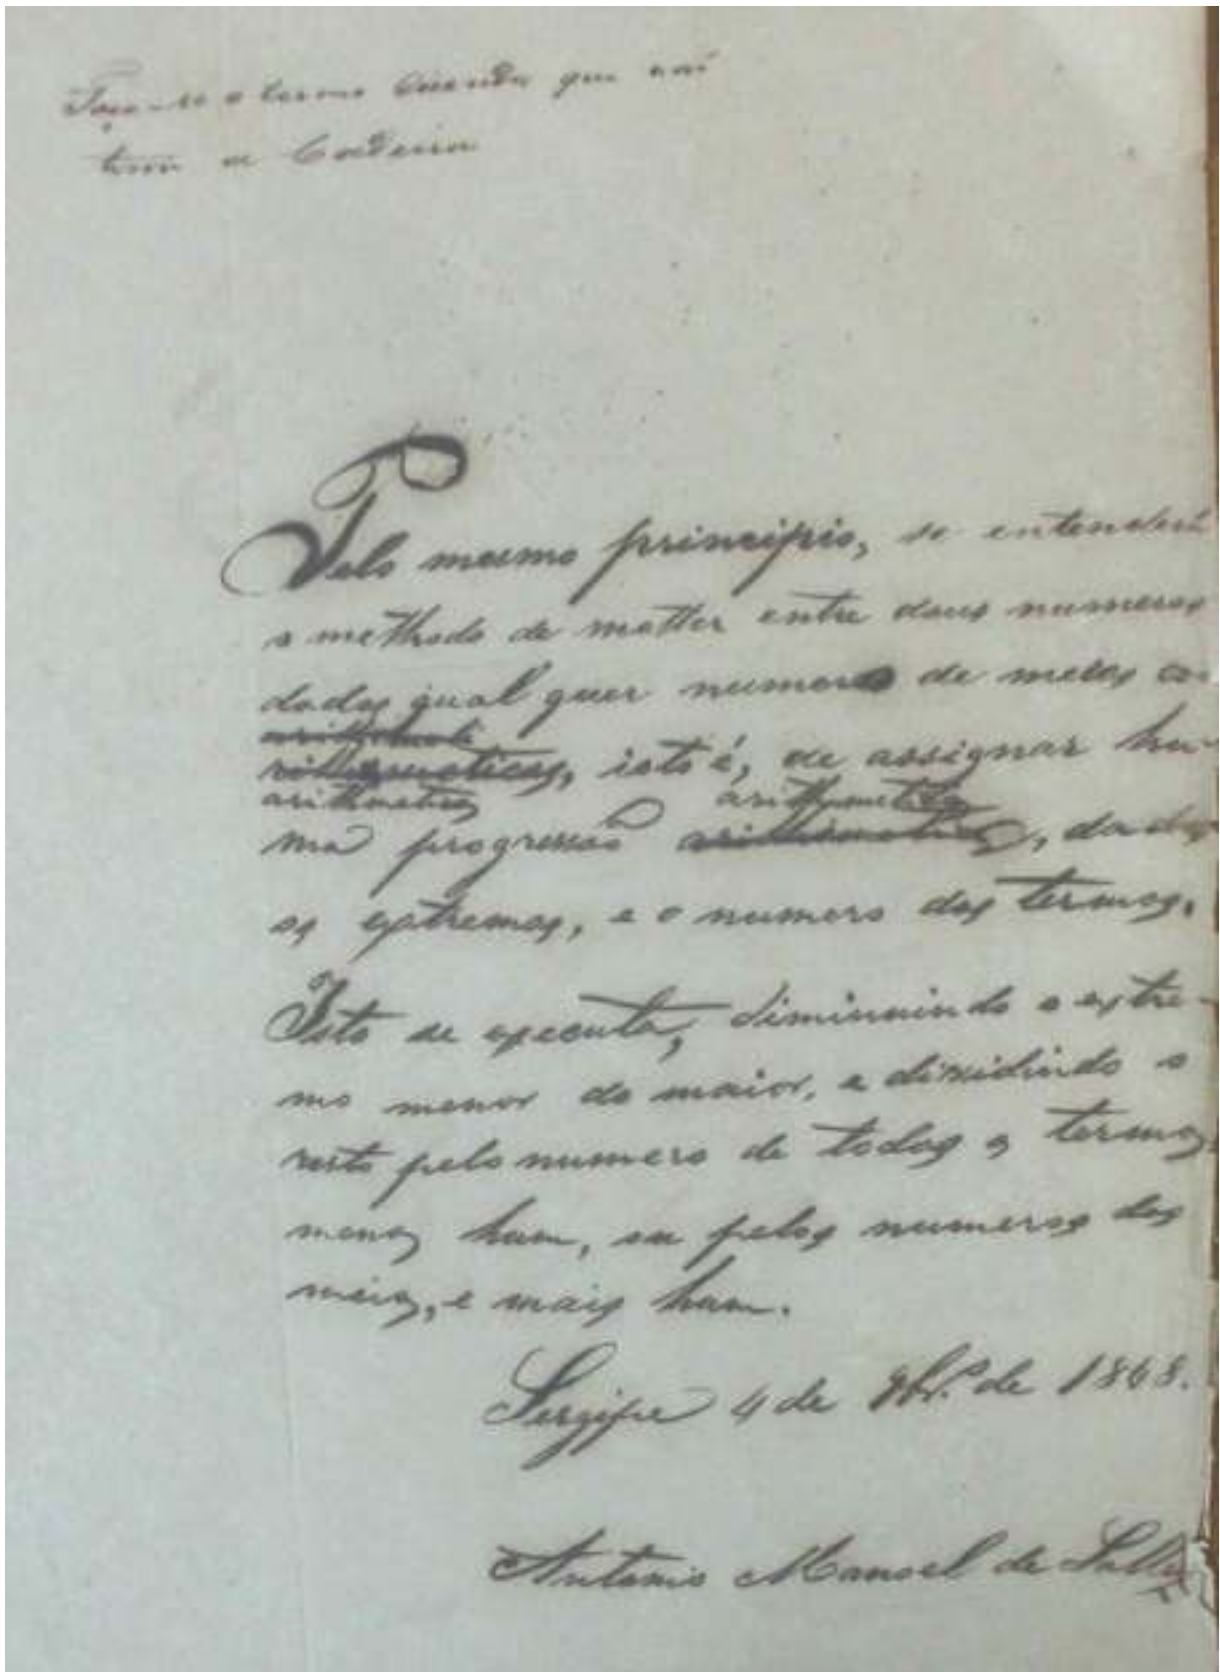 que
Pelo mesmo principio, se entenderá
o methodo de metter entre dous numeros
dados qual quer numero de meios a
rithmeticos, isto é, de assignar hu-
arithmeticos arithmetica
ma progressaõ arithmetica, dados
os extremos, e o numero dos termos.
Isto se executa, diminuindo o extre-
mo menor do maior, e dividindo o
resto pelo numero de todos os termos
menos hum, ou pelos numeros dos
meios, e mais hum.
Sergipe 4 de de 1848.
Antonio Manoel de